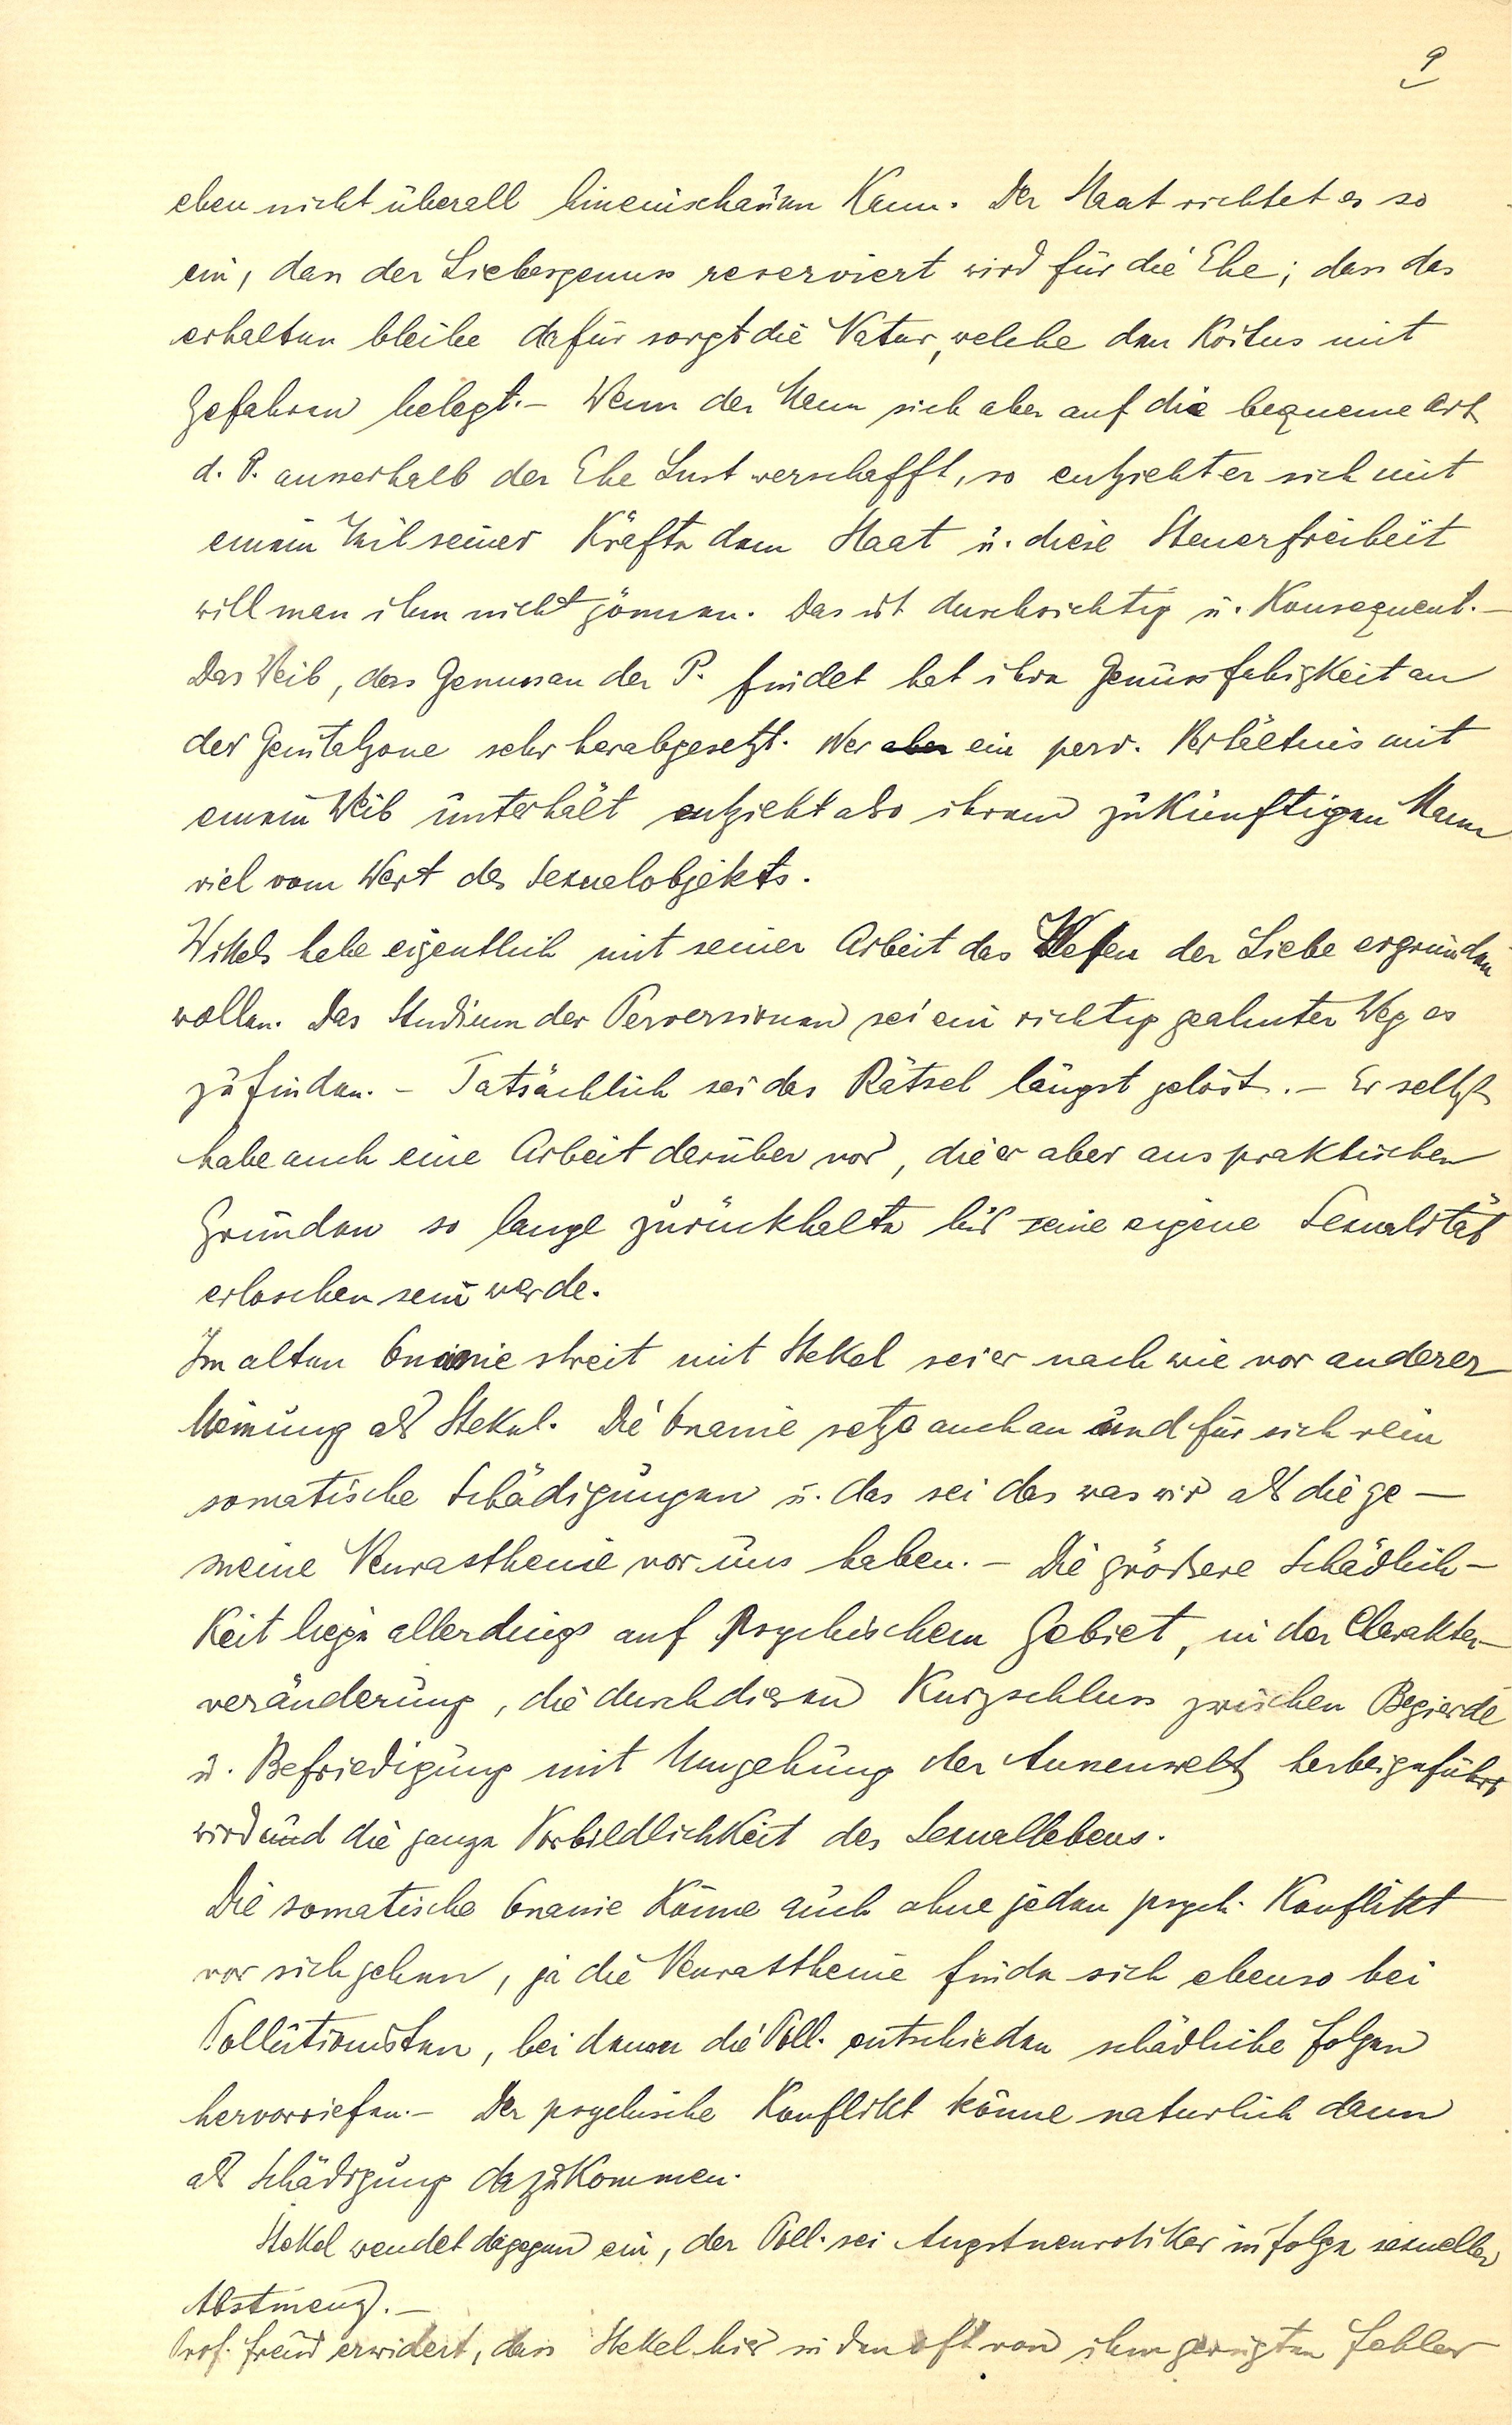 9
eben nicht überall hineinschauen kann. Der Staat richtet es so
ein, dass der Liebesgenuss reserviert wird für die Ehe; dass das
erhalten bleibe dafür sorgt die Natur, welche den Koitus mit
Gefahren belegt. – Wenn der Mann sich aber auf die bequeme Art
d. P. ausserhalb der Ehe Lust verschafft, so entzieht er sich mit
einem Teil seiner Kräfte dem Staat u. diese Steuerfreiheit
will man ihm nicht gönnen. Das ist durchsichtig u. konsequent. –
Das Weib, das Genuss an der P. findet hat ihre Genussfähigkeit an
der Genitalzone sehr herabgesetzt. Wer aber ein perv. Verhältnis mit
einem Weib unterhält entzieht also ihrem zukünftigen Mann
viel vom Wert des Sexualobjekts.
Wittels habe eigentlich mit seiner Arbeit das Wesen der Liebe ergründen
wollen. Das Studium der Perversionen sei ein richtig geahnter Weg es
zu finden. – Tatsächlich sei das Rätsel längst gelöst. – Er selbst
habe auch eine Arbeit darüber vor, die er aber aus praktischen
Gründen so lange zurückhalte bis seine eigene Sexualität
erloschen sein werde.
Im alten Onanie streit mit Stekel sei er nach wie vor anderer
Meinung als Stekel. Die Onanie setze auch an und für sich rein
somatische Schädigungen u. das sei das was wir als die ge-
meine Neurasthenie vor uns haben. – Die grössere Schädlich-
keit liege allerdings auf psychischem Gebiet, in der Charakter-
veränderung, die durch diesen Kurzschluss zwischen Begierde
u. Befriedigung mit Umgehung der Aussenwelt herbeigeführt
wird und die ganze Vorbildlichkeit des Sexuallebens.
Die somatische Onanie könne auch ohne jeden psych. Konflikt
vor sich gehen, ja die Neurasthenie finde sich ebenso bei
Pollutionisten, bei denen die Poll. entschieden schädliche Folgen
hervorriefen. – Der psychische Konflikt könne natürlich dann
als Schädigung dazukommen.
Stekel wendet dagegen ein, der Poll. sei Angstneurotiker infolge sexueller
Abstinenz. –
Prof. Freud erwidert, dass Stekel hier in den oft von ihm gerügten Fehler